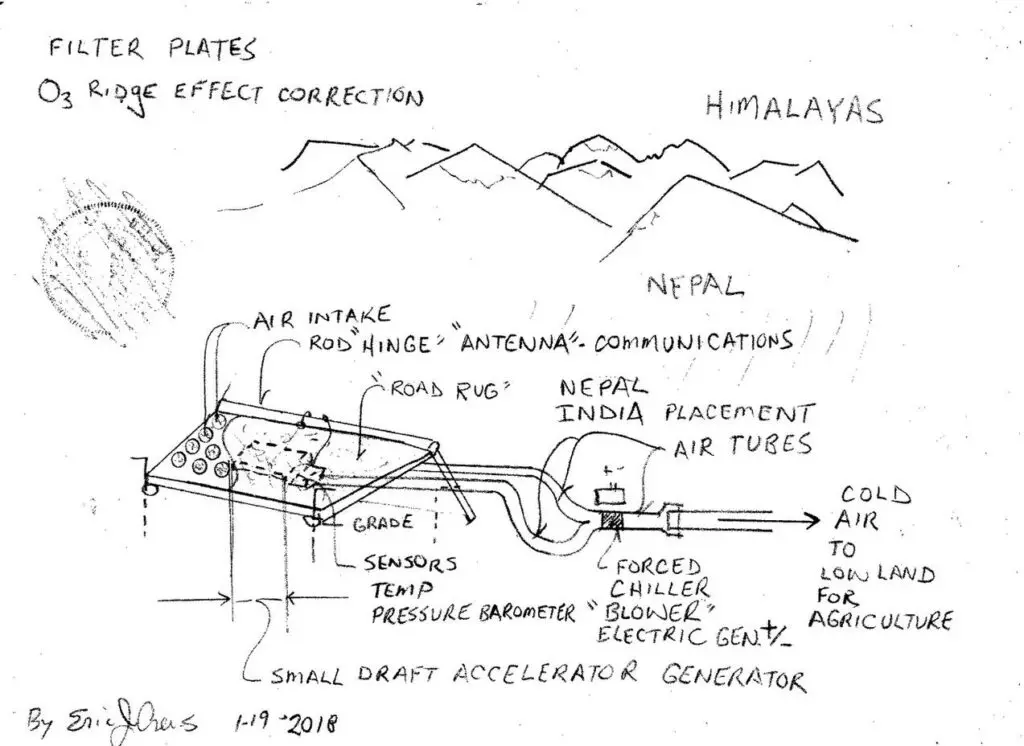 FILTER PLATES
O3 RIDGE EFFECT CORRECTION
HIMALAYAS
NEPAL
AIR INTAKE
ROD "HINGE" "ANTENNA" - COMMUNICATIONS
"ROAD RUG"
NEPAL
INDIA PLACEMENT
AIR TUBES
+ -
GRADE
SENSORS
TEMP
PRESSURE BAROMETER
FORCED
CHILLER
"BLOWER"
ELECTRIC GEN. +/-
COLD
AIR
TO
LOW LAND
FOR
AGRICULTURE
SMALL DRAFT ACCELERATOR GENERATOR
By Eric J 1-19-2018